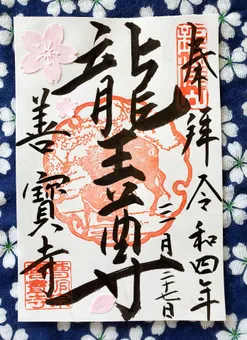 奉拝 令和四年
三月二十七日
龍王尊
善寳寺